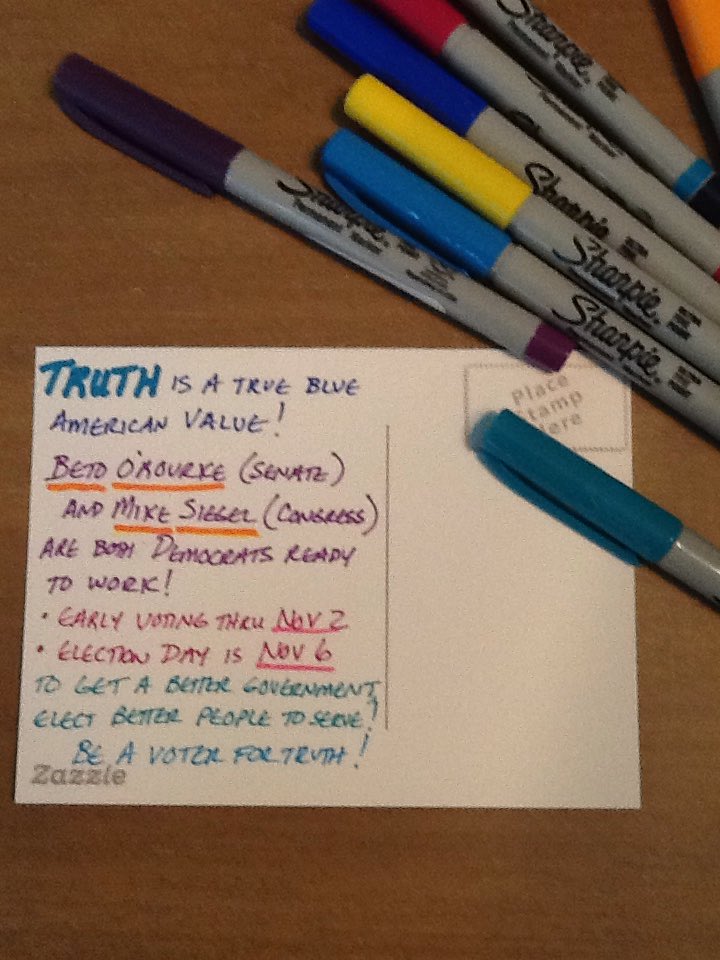 Sharpie
Sharpie
Sharpie
Sharpie
Sharpie
Place
Stamp
Here
TRUTH IS A TRUE BLUE
AMERICAN VALUE!
BETO O'ROURKE (SENATE)
AND MIKE SIEGEL (CONGRESS)
ARE BOTH DEMOCRATS READY
TO WORK!
• EARLY VOTING THRU NOV 2
• ELECTION DAY IS NOV 6
TO GET A BETTER GOVERNMENT,
ELECT BETTER PEOPLE TO SERVE!
BE A VOTER FOR TRUTH!
Zazzle